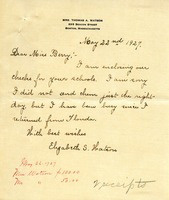 MRS. THOMAS A. WATSON
BOSTON, MASSACHUSETTS
May 22nd 1927.
Dear Miss Berry:-
I am enclosing our
checks for your schools. I am sorry
I did not send them just the right
day but I have been busy since I
returned from Florida.
With best wishes
Elizabeth S. Watson
May 26 1927
Mrs Watson $100.00
Mr " 
receipts